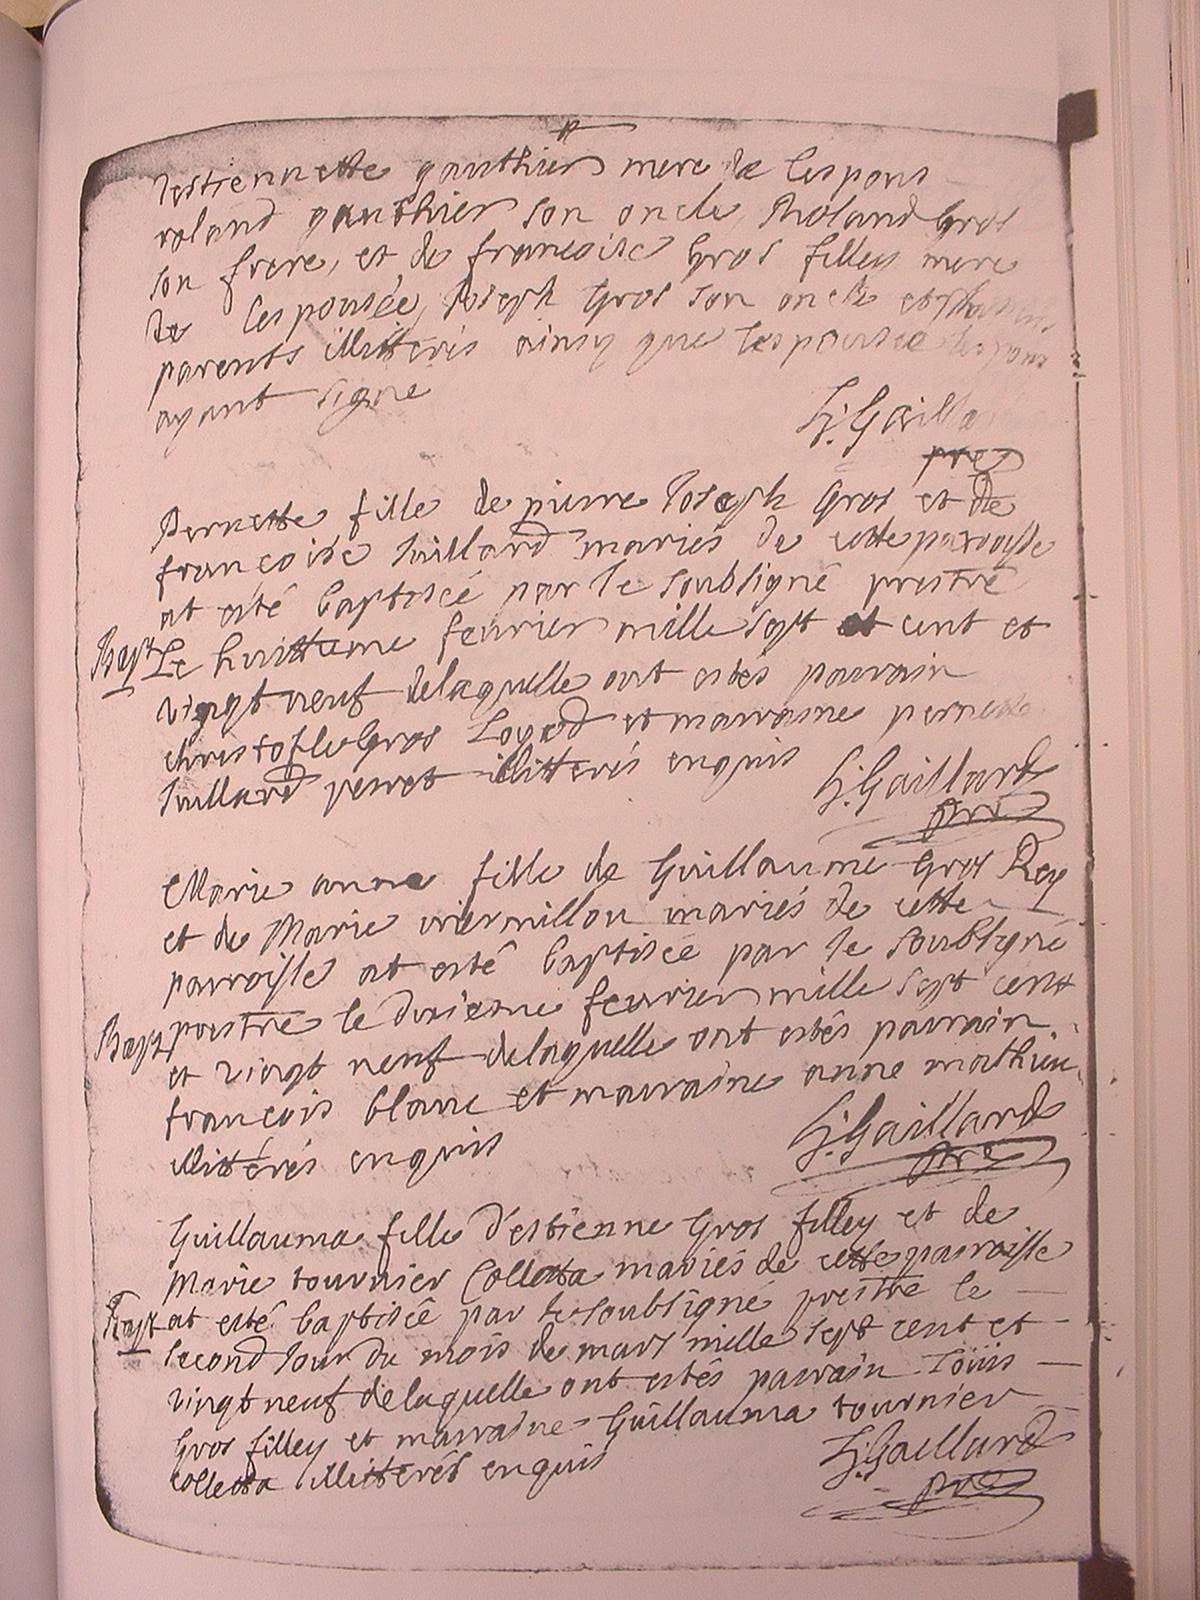 estiennette gauthier mere de lespous
roland gauthier son oncle, Roland Gros
son frere, et de francoise Gros filley mere
de lespousée, Joseph Gros son oncle et
parents illitterés ainsy que lespousée lespous
ayant signe
G. Gaillard
pre
Pernette fille de pierre Joseph Gros et de
francoise Juillard mariés de cette parroisse
at esté baptisée par le soubsigné prestre
Bapt Le huittieme fevrier mille sept et cent et
vingt neuf de laquelle ont estés parrain
christofle Gros Loyod et marraine pernette
Juillard perret illitterés enquis
G. Gaillard
pre
Marie anne fille de Guillaume Gros Rey
et de Marie vuermillou mariés de cette
parroisse at esté baptisée par le soubsigné
Bapt prestre le dixieme fevrier mille sept cent
et vingt neuf de laquelle ont estés parrain
francois blanc et marraine anne mathieu
illitterés enquis
G. Gaillard
pre
Guillauma fille d'estienne Gros filley et de
Marie tournier Colletta mariés de cette parroisse
Bapt at esté baptisée par le soubsigné prestre le
second jour du mois de mars mille sept cent et
vingt neuf de laquelle ont estés parrain Loüis
Gros filley et marraine Guillauma tournier
colletta illitterés enquis
G. Gaillard
pre